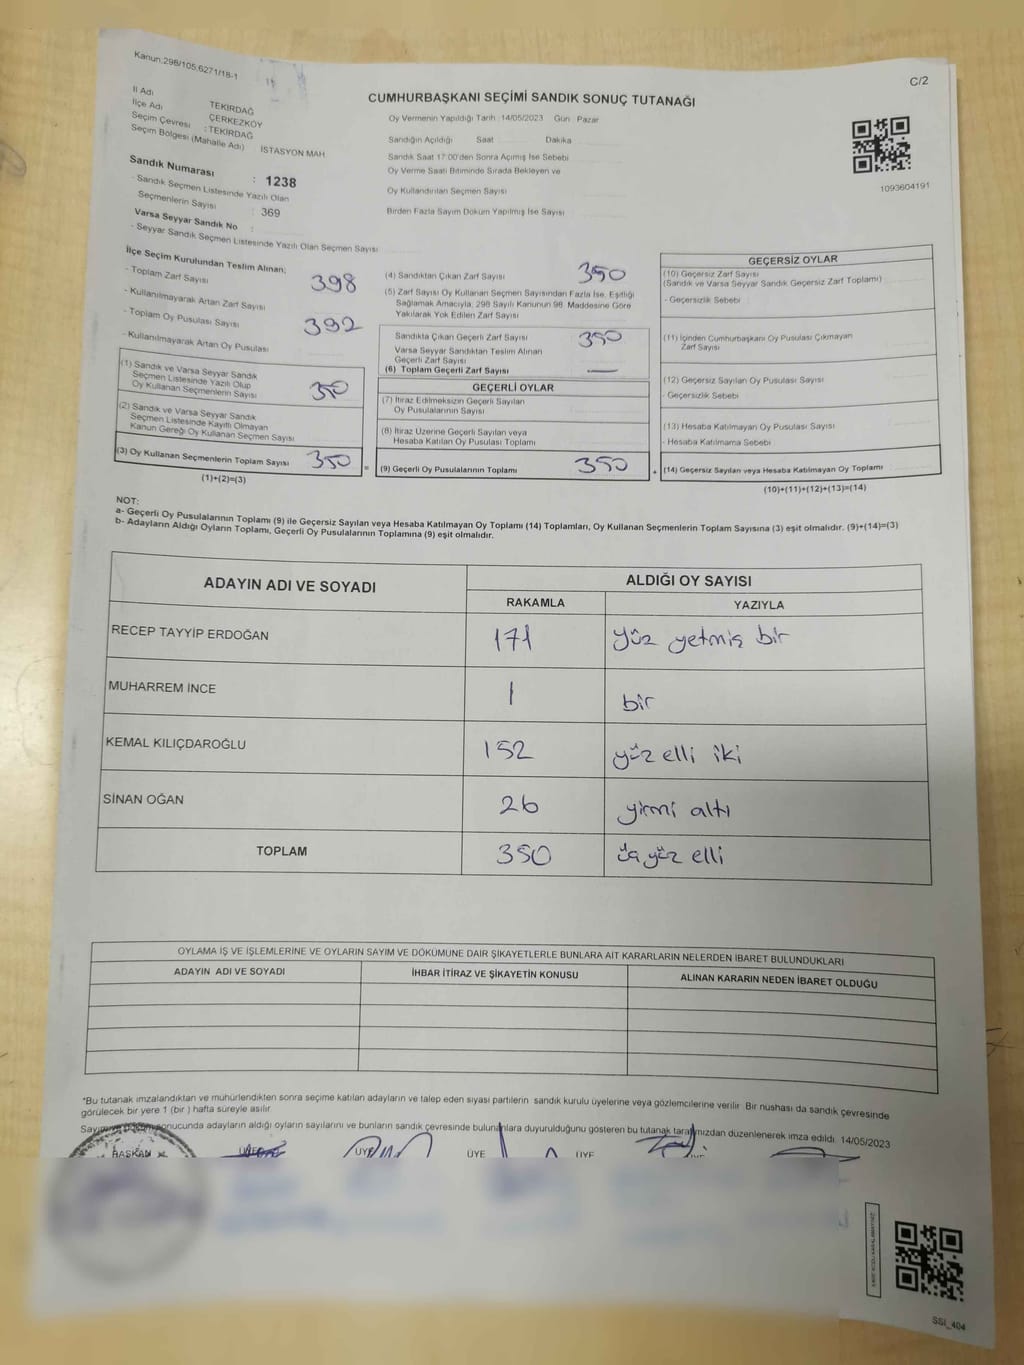 Kanun.298/105,6271/18-1
C/2
İl Adı
İlçe Adı TEKİRDAĞ
Seçim Çevresi ÇERKEZKÖY
Seçim Bölgesi (Mahalle Adı) : TEKİRDAĞ
İSTASYON MAH
Sandık Numarası : 1238
- Sandık Seçmen Listesinde Yazılı Olan
Seçmenlerin Sayısı : 369
Varsa Seyyar Sandık No :
- Seyyar Sandık Seçmen Listesinde Yazılı Olan Seçmen Sayısı
CUMHURBAŞKANI SEÇİMİ SANDIK SONUÇ TUTANAĞI
Oy Vermenin Yapıldığı Tarih :14/05/2023 Gün : Pazar
Sandığın Açıldığı Saat Dakika
Sandık Saat 17:00'den Sonra Açımış İse Sebebi
Oy Verme Saati Bitiminde Sırada Bekleyen ve
Oy Kullandırılan Seçmen Sayısı
Birden Fazla Sayım Döküm Yapılmış İse Sayısı
1093604191
İlçe Seçim Kurulundan Teslim Alınan;
- Toplam Zarf Sayısı 398
- Kullanılmayarak Artan Zarf Sayısı
- Toplam Oy Pusulası Sayısı 392
- Kullanılmayarak Artan Oy Pusulası
(1) Sandık ve Varsa Seyyar Sandık
Seçmen Listesinde Yazılı Olup
Oy Kullanan Seçmenlerin Sayısı 350
(2) Sandık ve Varsa Seyyar Sandık
Seçmen Listesinde Kayıtlı Olmayan
Kanun Gereği Oy Kullanan Seçmen Sayısı
(3) Oy Kullanan Seçmenlerin Toplam Sayısı 350 =
(1)+(2)=(3)
(4) Sandıktan Çıkan Zarf Sayısı 350
(5) Zarf Sayısı Oy Kullanan Seçmen Sayısından Fazla İse, Eşitliği
Sağlamak Amacıyla, 298 Sayılı Kanunun 98. Maddesine Göre
Yakılarak Yok Edilen Zarf Sayısı
Sandıkta Çıkan Geçerli Zarf Sayısı 350
Varsa Seyyar Sandıktan Teslim Alınan
Geçerli Zarf Sayısı
(6) Toplam Geçerli Zarf Sayısı —
GEÇERLİ OYLAR
(7) İtiraz Edilmeksizin Geçerli Sayılan
Oy Pusulalarının Sayısı
(8) İtiraz Üzerine Geçerli Sayılan veya
Hesaba Katılan Oy Pusulası Toplamı
(9) Geçerli Oy Pusulalarının Toplamı 350 +
GEÇERSİZ OYLAR
(10) Geçersiz Zarf Sayısı
(Sandık ve Varsa Seyyar Sandık Geçersiz Zarf Toplamı)
- Geçersizlik Sebebi
(11) İçinden Cumhurbaşkanı Oy Pusulası Çıkmayan
Zarf Sayısı
(12) Geçersiz Sayılan Oy Pusulası Sayısı
- Geçersizlik Sebebi
(13) Hesaba Katılmayan Oy Pusulası Sayısı
- Hesaba Katılmama Sebebi
(14) Geçersiz Sayılan veya Hesaba Katılmayan Oy Toplamı
(10)+(11)+(12)+(13)=(14)
NOT:
a- Geçerli Oy Pusulalarının Toplamı (9) ile Geçersiz Sayılan veya Hesaba Katılmayan Oy Toplamı (14) Toplamları, Oy Kullanan Seçmenlerin Toplam Sayısına (3) eşit olmalıdır. (9)+(14)=(3)
b- Adayların Aldığı Oyların Toplamı, Geçerli Oy Pusulalarının Toplamına (9) eşit olmalıdır.
ADAYIN ADI VE SOYADI ALDIĞI OY SAYISI
RAKAMLA YAZIYLA
RECEP TAYYİP ERDOĞAN 171 yüz yetmiş bir
MUHARREM İNCE 1 bir
KEMAL KILIÇDAROĞLU 152 yüz elli iki
SİNAN OĞAN 26 yirmi altı
TOPLAM 350 üç yüz elli
OYLAMA İŞ VE İŞLEMLERİNE VE OYLARIN SAYIM VE DÖKÜMÜNE DAİR ŞİKAYETLERLE BUNLARA AİT KARARLARIN NELERDEN İBARET BULUNDUKLARI
ADAYIN ADI VE SOYADI İHBAR İTİRAZ VE ŞİKAYETİN KONUSU ALINAN KARARIN NEDEN İBARET OLDUĞU
*Bu tutanak imzalandıktan ve mühürlendikten sonra seçime katılan adayların ve talep eden siyasi partilerin sandık kurulu üyelerine veya gözlemcilerine verilir. Bir nüshası da sandık çevresinde
görülecek bir yere 1 (bir ) hafta süreyle asılır.
Sayım ve sonucunda adayların aldığı oyların sayılarını ve bunların sandık çevresinde bulunanlara duyurulduğunu gösteren bu tutanak tarafımızdan düzenlenerek imza edildi. 14/05/2023
BAŞKAN ÜYE ÜYE ÜYE ÜYE
SSİ_404